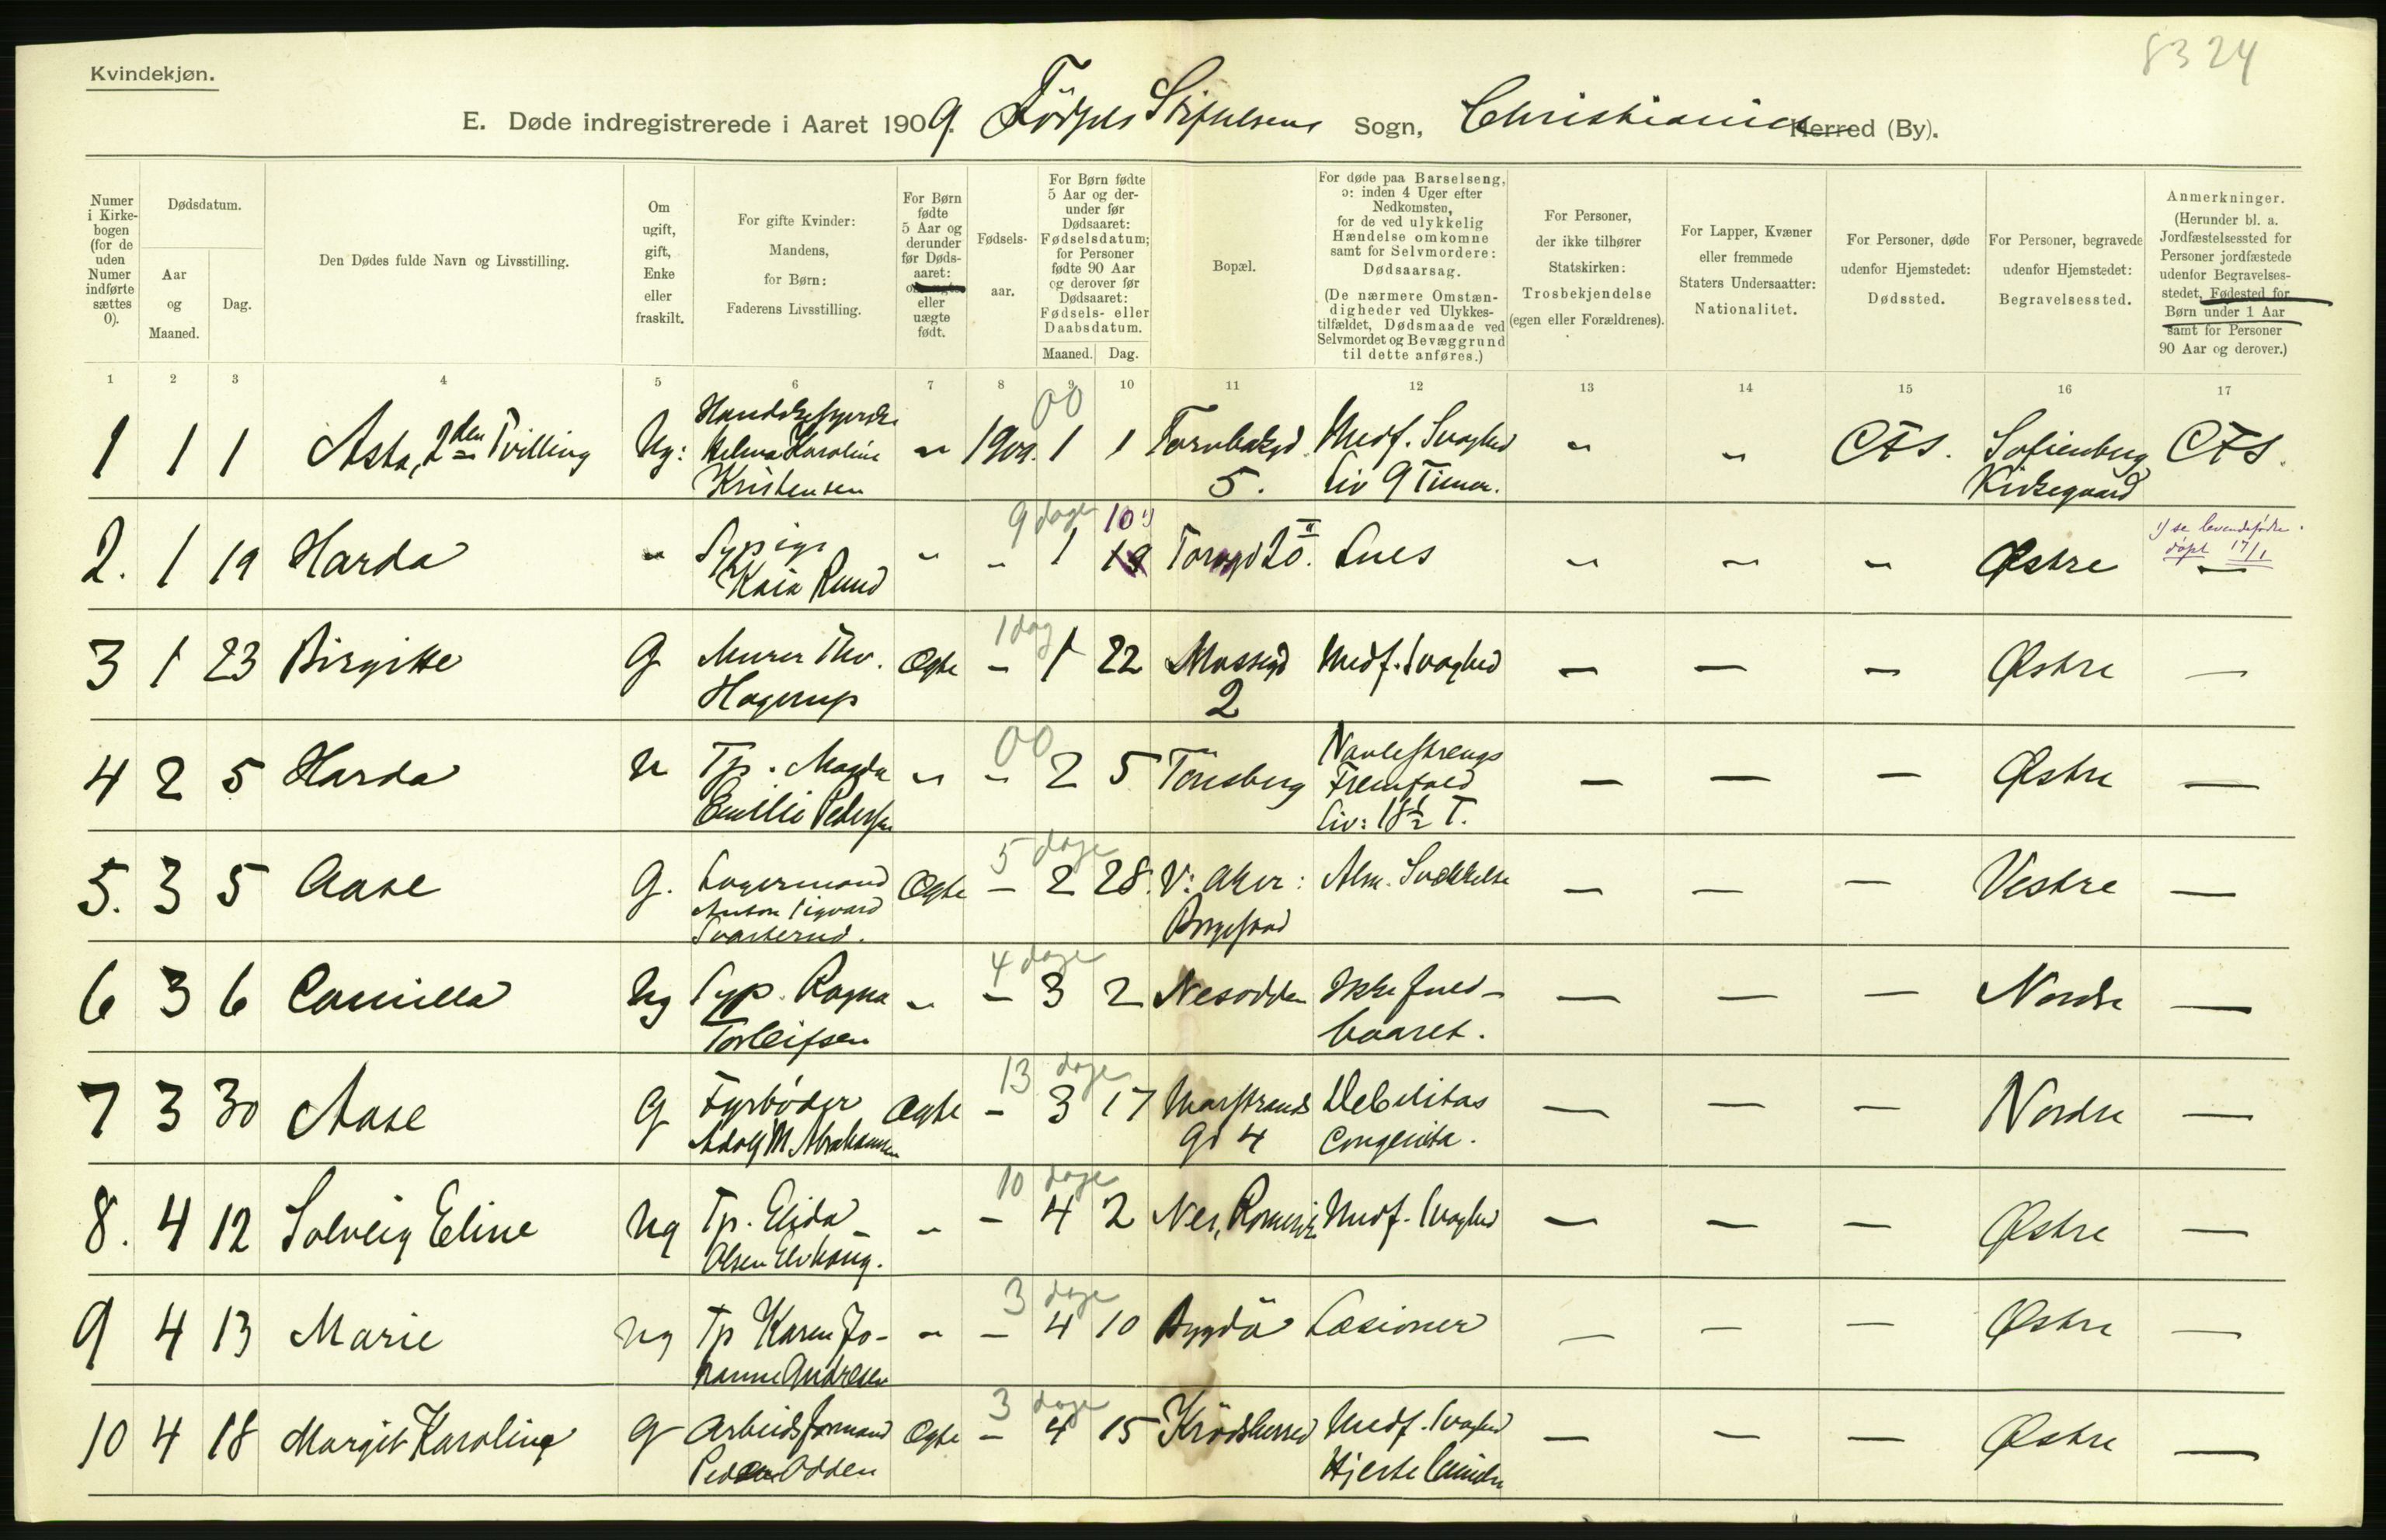 8324
Kvindekjøn.
E. Døde indregistrerede i Aaret 1909. Födsels Stiftelsens Sogn, Christiania Herred (By).
Numer i Kirkebogen (for de uden Numer indførte sættes 0).
Dødsdatum.
Aar og Maaned.
Dag.
Den Dødes fulde Navn og Livsstilling.
Om ugift, gift, Enke eller fraskilt.
For gifte Kvinder: Mandens, for Børn: Faderens Livsstilling.
For Børn fødte 5 Aar og derunder før Dødsaaret: eller uægte født.
Fødselsaar.
For Børn fødte 5 Aar og derunder før Dødsaaret: Fødselsdatum; for Personer fødte 90 Aar og derover før Dødsaaret: Fødsels- eller Daabsdatum.
Maaned. Dag.
Bopæl.
For døde paa Barselseng, ɔ: inden 4 Uger efter Nedkomsten, for de ved ulykkelig Hændelse omkomne samt for Selvmordere: Dødsaarsag.
(De nærmere Omstændigheder ved Ulykkestilfældet, Dødsmaade ved Selvmordet og Bevæggrund til dette anføres.)
For Personer, der ikke tilhører Statskirken: Trosbekjendelse (egen eller Forældrenes).
For Lapper, Kvæner eller fremmede Staters Undersaatter: Nationalitet.
For Personer, døde udenfor Hjemstedet: Dødssted.
For Personer, begravede udenfor Hjemstedet: Begravelsessted.
Anmerkninger. (Herunder bl. a. Jordfæstelsessted for Personer jordfæstede udenfor Begravelsesstedet, Fødested for Børn under 1 Aar samt for Personer 90 Aar og derover.)
1 2 3 4 5 6 7 8 9 10 11 12 13 14 15 16 17
00
1 1 1 Asta, 2den Tvilling Ug: Helma Karoline Kristensen " 1909. 1 1 5. Medf. Svaghed Liv 9 Timer. " " CFS. Sofienberg Kirkegaard CFS.
9 dage 10 1)
2. 1 19 Harda " Sypige Kaia Ruud " " 1 19 Torvgd 20. II Lues " " " Østre —
1) se levendefødte. døpt 17/1
1 dag
3 1 23 Birgitte G Murer Thv. Hagerup Ægte — 1 22 Mossegd 2 Medf. Svaghed — — — Østre —
00
4 2 5 Harda U Tp. Magda Emilie Pedersen " " 2 5 Tönsberg Navlestrengs Fremfald Liv: 18½ T. — — — Østre —
5 dage
5. 3 5 Aase G. Lagermand Anton Sigvard Svarterud. Ægte — 2 28. V: Aker: Alm. Svækkelse — — — Vestre —
4 dage
6 3 6 Camilla Ug Syp. Ragna Torleifsen " — 3 2 Nesodden Ikke fuldbaaret. — — — Nordre —
13 dage
7 3 30 Aase G Fyrböder Adolf M. Abrahamsen Ægte — 3 17 Marstrands Gd 4 Debilitas Congenita. — — — Nordre —
10 dage
8. 4 12 Solveig Eline Ug Tp. Elida Olsen " — 4 2 Nes, Romerike Medf. Svaghed — — — Østre —
3 dage
9 4 13 Marie Ug Tp Karen Johanne Andresen " — 4 10 Bygdö Læsioner — — — Østre —
3 dage
10 4 18 Margit Karoline G Arbeidsformand Peder Odden Ægte — 4 15 Krödsherred Medf. Svaghed — — — Østre —